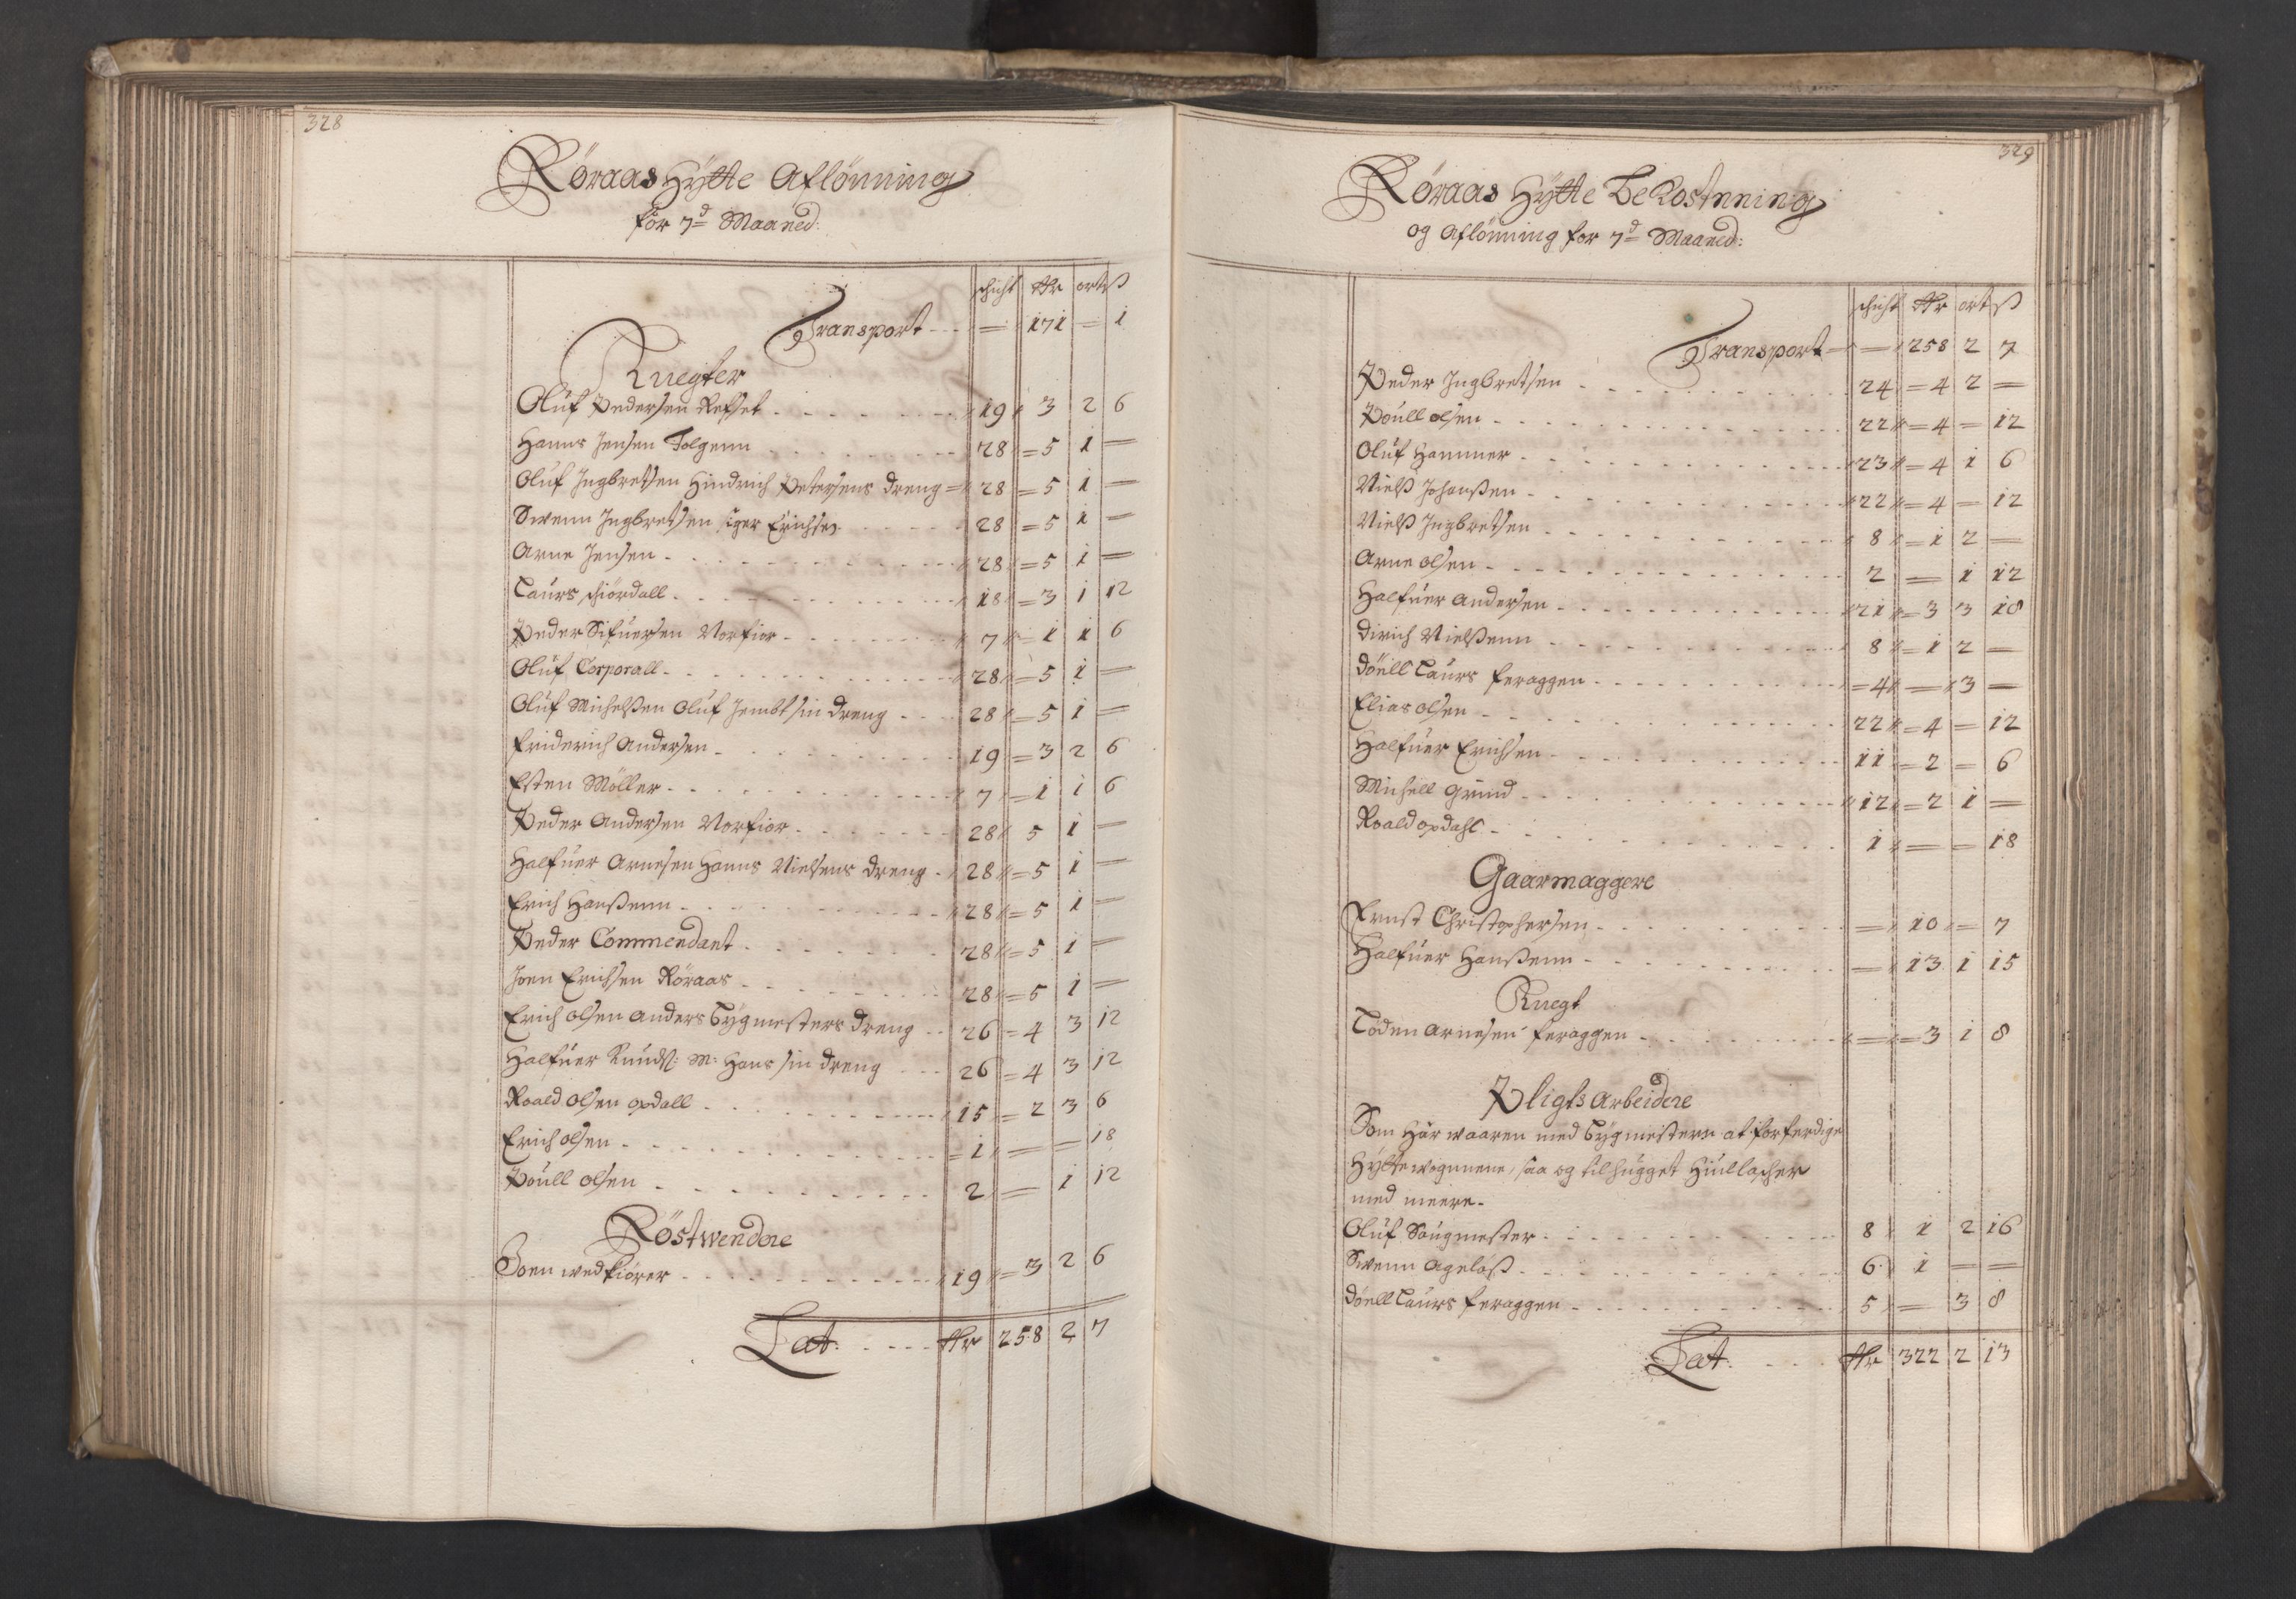 328
Röraas Hytte Aflönning
for 7d Maaned:
schicht Rdr ort ß
Transport - - - = 171 = 1
Knegter
Oluf Pedersen Refset - - - 19 3 2 6
Hanns Jensen Tolgenn 28 = 5 1 =
Oluf Ingbretsen Hindrich Petersens dreng = 28 = 5 1 =
Swenn Ingbretsen Erichsen - - - 28 = 5 1 =
Arne Jensen - - - 28 = 5 1 =
Laurs schiördall - - - 18 = 3 1 12
Peder Sifuersen Norfior - - - 7 = 1 1 6
Oluf Corporall - - - 28 = 5 1 =
Oluf Michelßen Oluf Jembt sin dreng - - - 28 = 5 1 =
Friderich Andersen - - - 19 = 3 2 6
Esten Möller - - - 7 = 1 1 6
Peder Andersen Norfior - - - 28 5 1 =
Halfuer Arnesen Hanns Nielsens dreng - 28 = 5 1 =
Erich Hanßenn - - - 28 = 5 1 =
Peder Commendant - - - 28 = 5 1 =
Joen Erichsen Röraas - - - 28 = 5 1 =
Erich olsen Anders Bygmesters dreng - - 26 = 4 3 12
Halfuer Knuds: M: Hans sin dreng - - - 26 = 4 3 12
Roald Olsen opdall - - - 15 = 2 3 6
Erich olsen - - - = 1 = = 18
Poull olsen - - - 2 = 1 12
Röstwendere
Joen wedkiörer - - - 19 = 3 2 6
Lat: - - - Rdr 258 2 7
329
Röraas Hytte Bekostnning
og Aflönning for 7d Maaned:
schicht Rdr ort ß
Transport = = 258 2 7
Peder Ingbretsen - - - 24 = 4 2 =
Poull olsen - - - 22 = 4 = 12
Oluf Hammer - - - 23 = 4 1 6
Nielß Johanßen - - - 22 = 4 = 12
Nielß Ingbretsen - - - 8 = 1 2 =
Arne olsen - - - 2 = 1 12
Halfuer Andersen - - - 21 = 3 3 18
Dirich Nielßenn - - - 8 = 1 2 =
Döell Laurs Feraggen - - - = 4 = 3 =
Elias olsen - - - 22 = 4 = 12
Halfuer Erichsen - - - 11 = 2 = 6
Michell Grind - - - 12 = 2 1 =
Roald opdahl - - - 1 = = 18
Gaarmaggere
Ernst Christophersen - - - = 10 = 7
Halfuer Hanßenn - - - = 13 1 15
Knegt
Loden Arnesen Feraggen - - - = = 3 1 8
Pligts Arbeidere
Som Här waaren med Bygmestern at forferdige
Hyttewognnene, saa og tilhugget Hiullacher
med meere.
Oluf Saugmester - - - 8 1 2 16
Swenn Ageloß - - - 6 1 = =
Döell Laurs Feraggen - - - 5 = 3 8
Lat: - - - Rdr 322 2 13